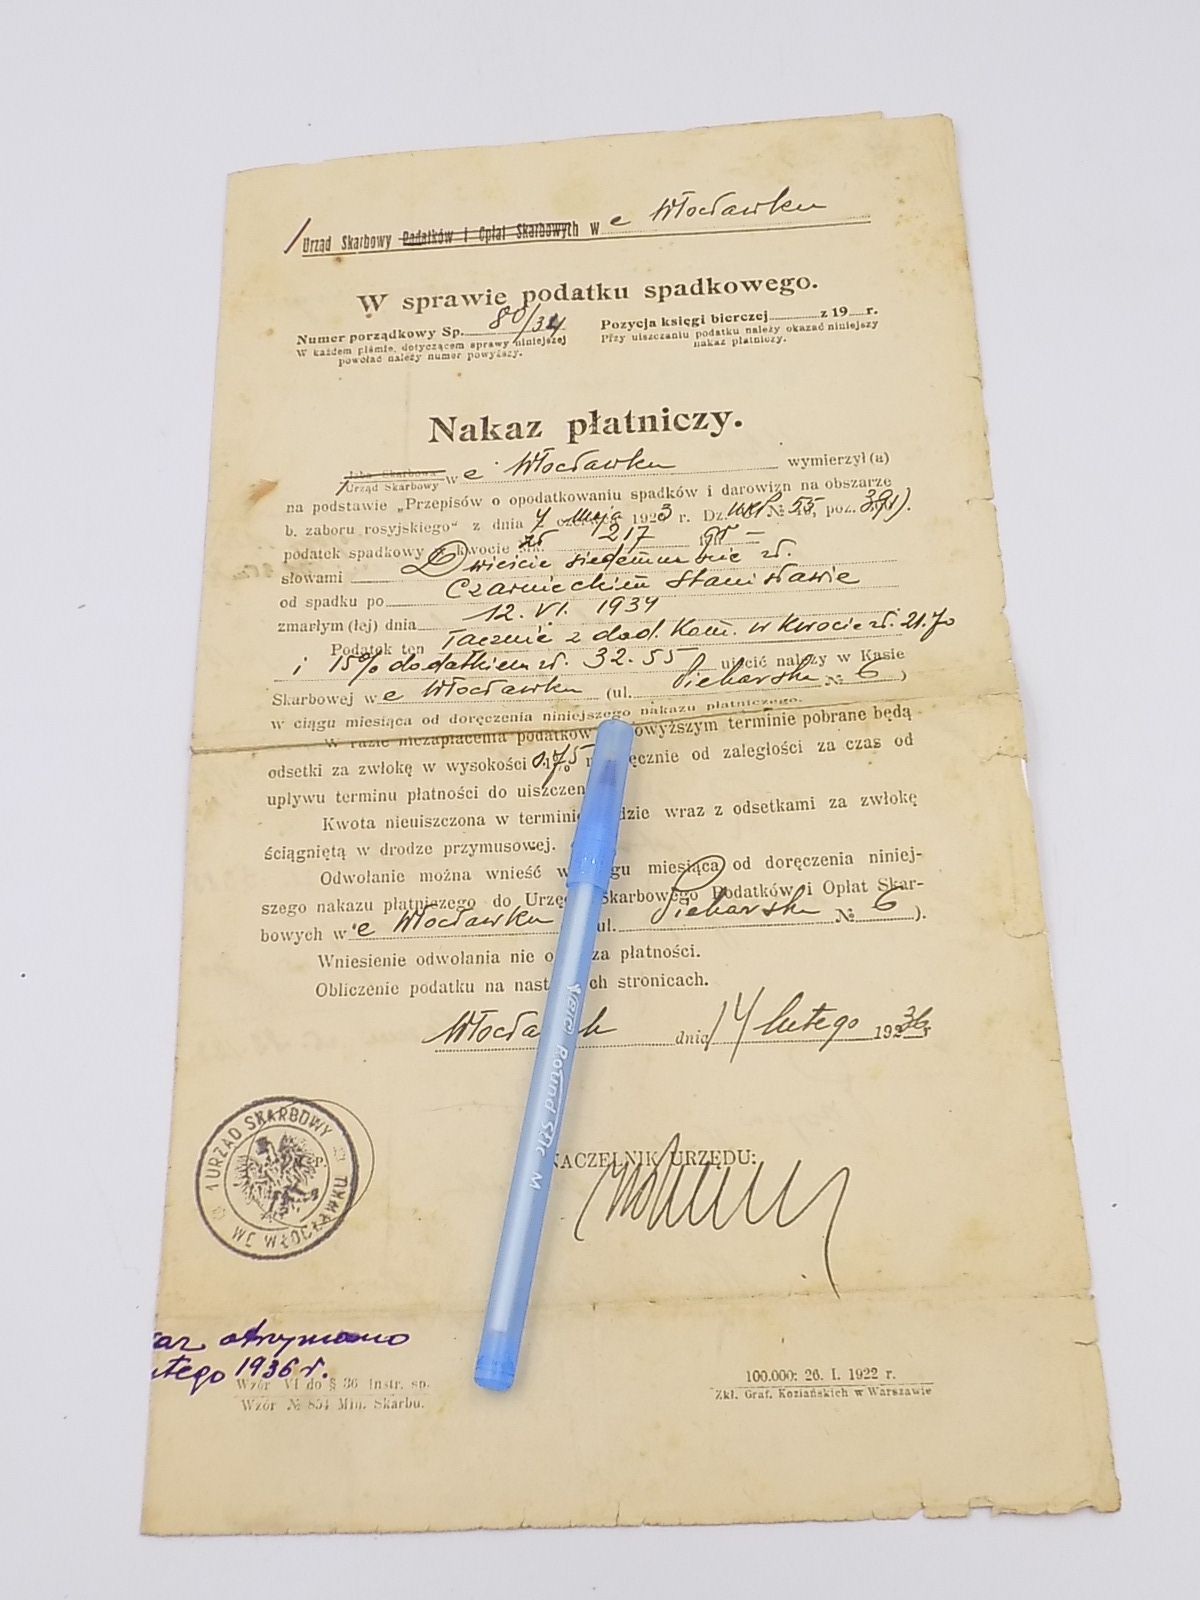 1 Urząd Skarbowy Podatków i Opłat Skarbowych w e Włocławku
W sprawie podatku spadkowego.
Numer porządkowy Sp. 80/34
W każdem piśmie, dotyczącem sprawy niniejszej
powołać należy numer powyższy.
Pozycja księgi bierczej z 19 r.
Przy uiszczaniu podatku należy okazać niniejszy
nakaz płatniczy.
Nakaz płatniczy.
Izba Skarbowa
1 Urząd Skarbowy w e Włocławku wymierzył (a)
na podstawie „Przepisów o opodatkowaniu spadków i darowizn na obszarze
b. zaboru rosyjskiego" z dnia 7 maja 1923 r. Dz. № 55, poz. 391).
podatek spadkowy w kwocie zł 217 gr —
słowami Dwieście siedemnaście zł.
od spadku po Czarnieckim Stanisławie
zmarłym (łej) dnia 12. VI. 1934
Podatek ten łącznie z dod. Kom. w kwocie zł. 21.70
i 15% dodatkiem zł. 32.55 uiścić należy w Kasie
Skarbowej w e Włocławku (ul. Piekarska № 6)
w ciągu miesiąca od doręczenia niniejszego nakazu płatniczego.
W razie niezapłacenia podatków powyższym terminie pobrane będą
odsetki za zwłokę w wysokości 0.75% od zaległości za czas od
upływu terminu płatności do uiszczen
Kwota nieuiszczona w terminie dzie wraz z odsetkami za zwłokę
ściągniętą w drodze przymusowej.
Odwołanie można wnieść w gu miesiąca od doręczenia niniej-
szego nakazu płatniczego do Urzę Skarbowego Podatków i Opłat Skar-
bowych w e Włocławku ul. Piekarska № 6 ).
Wniesienie odwołania nie o za płatności.
Obliczenie podatku na nast ch stronicach.
Włocławek dnia 14 lutego 1936 r
NACZELNIK URZĘDU:
1 URZĄD SKARBOWY WE WŁOCŁAWKU
az otrzymano
utego 1936 r.
Wzór VI do § 36 Instr. sp.
Wzór № 854 Min. Skarbu.
100.000: 26. I. 1922 r.
Zkł. Graf. Koziańskich w Warszawie
BIC Round Stic M